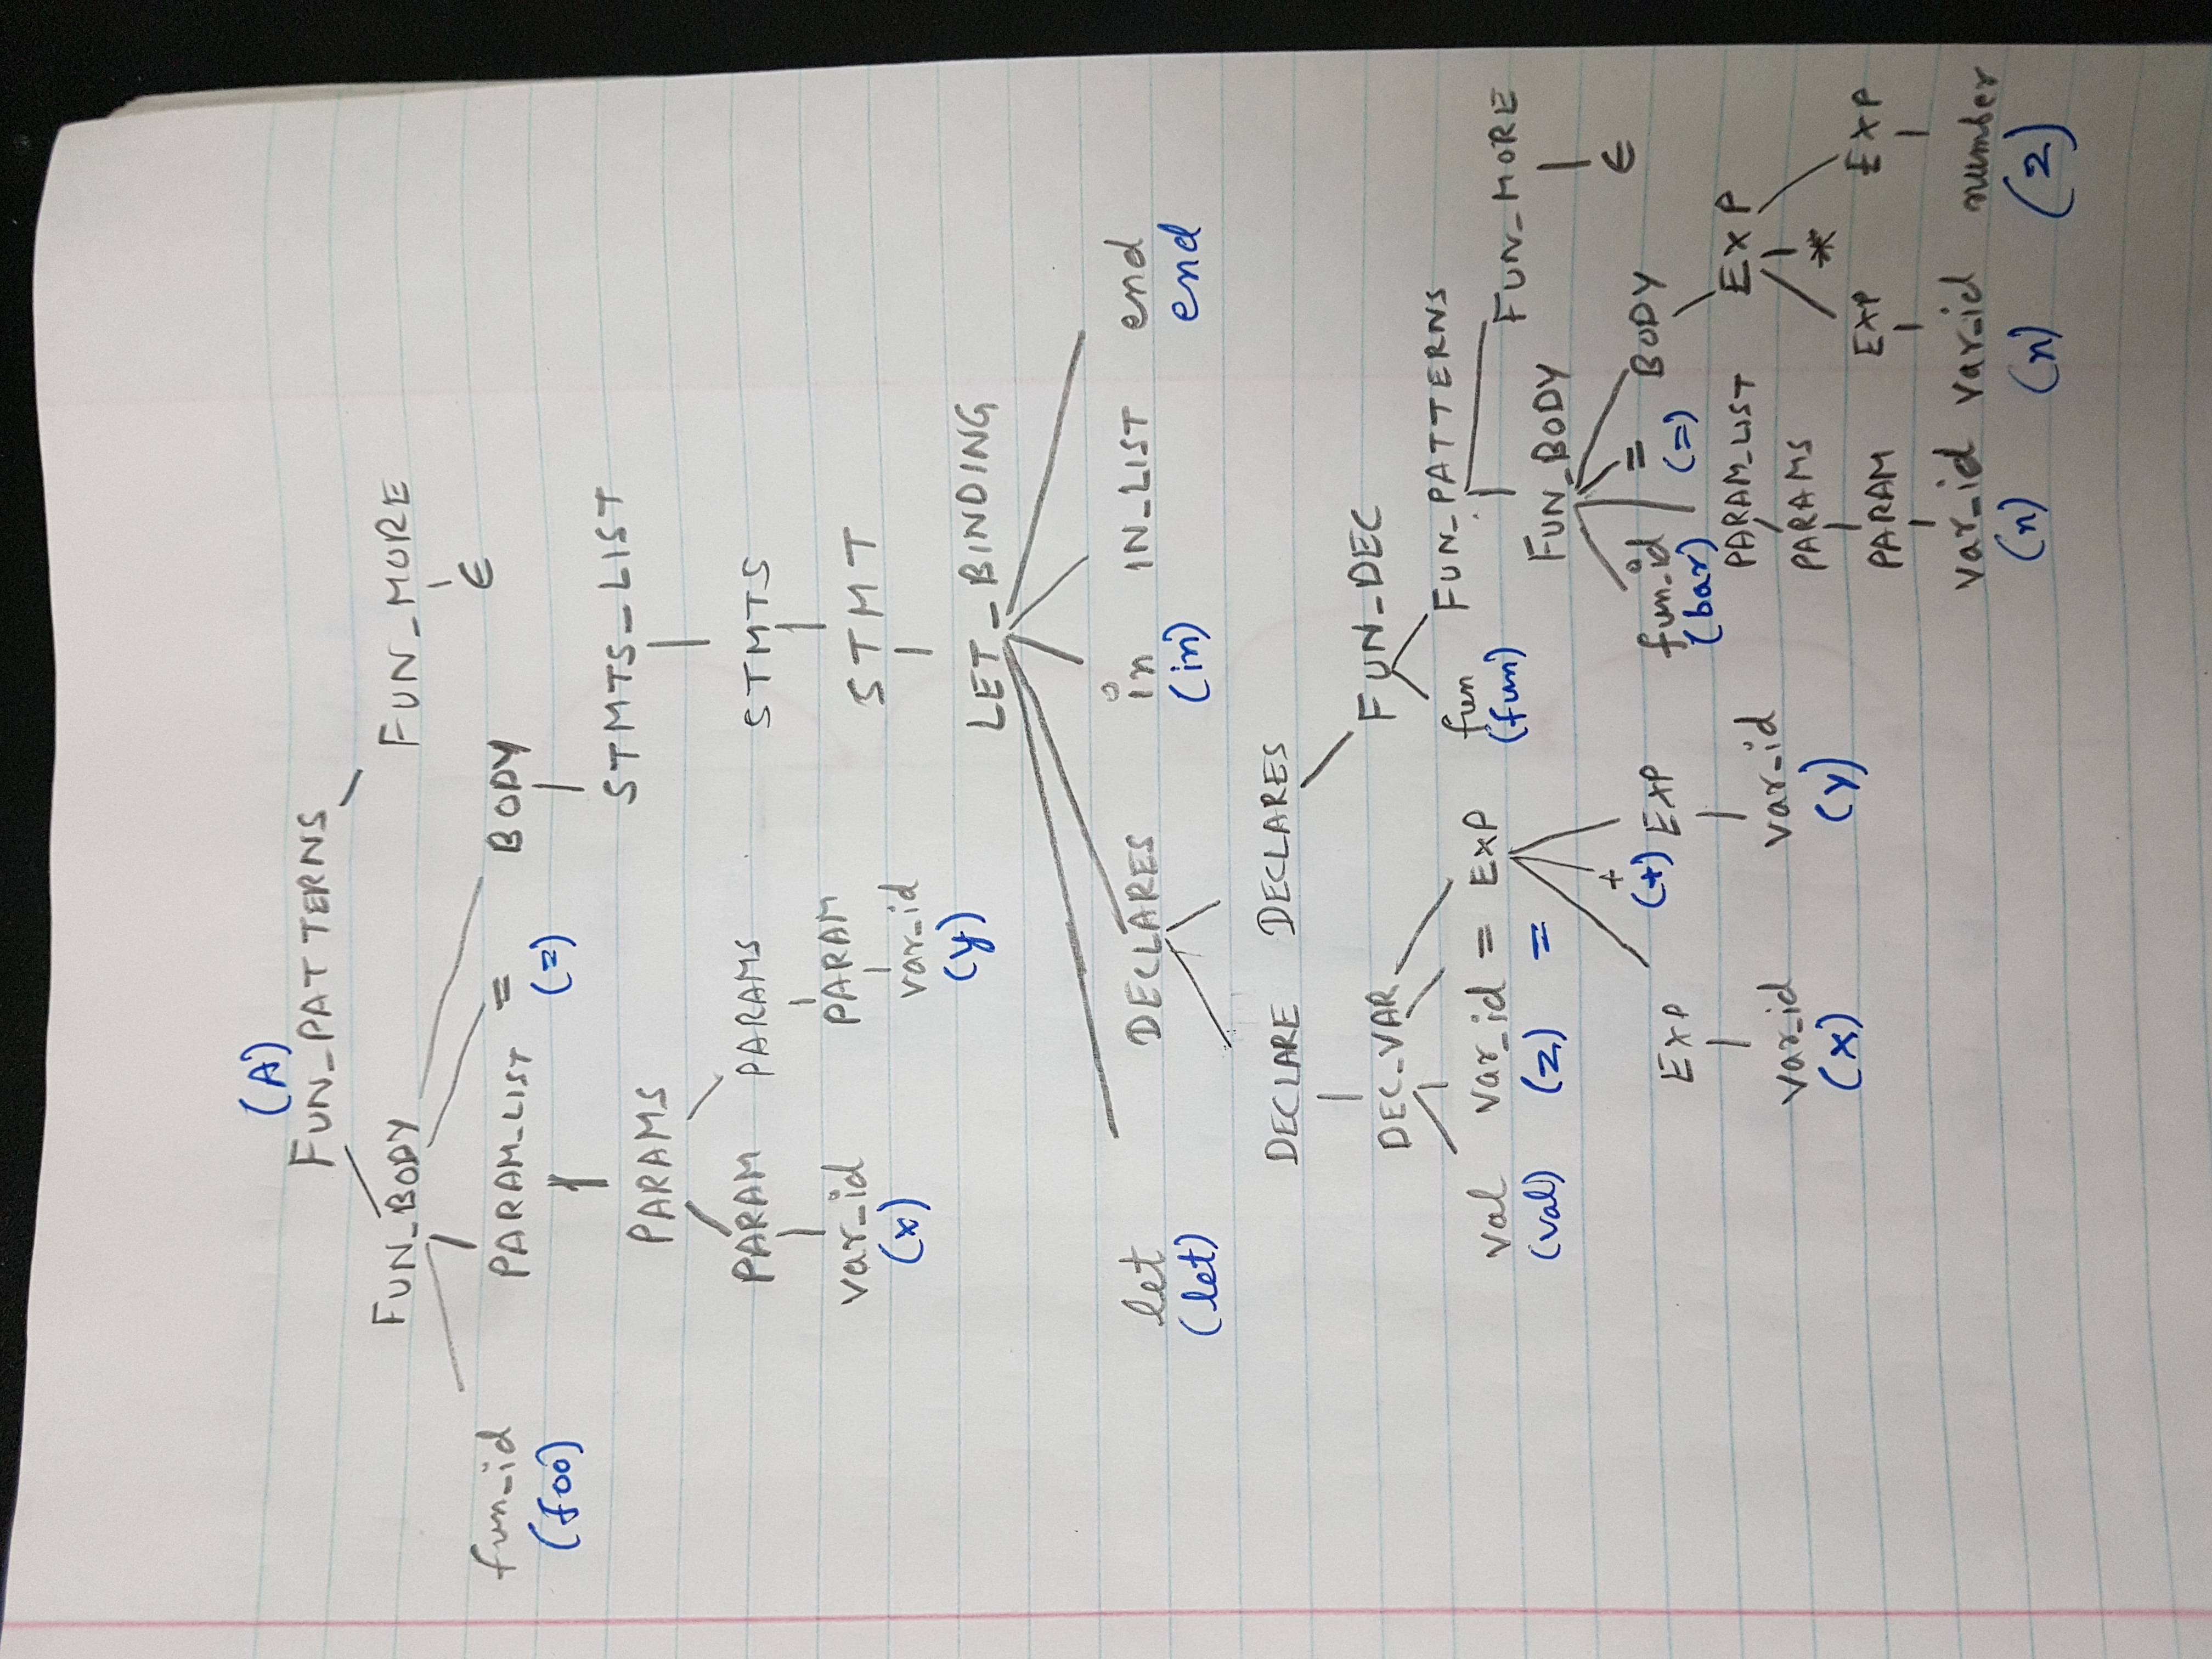 (A)
FUN_PATTERNS
FUN_BODY FUN_MORE
fun_id PARAM_LIST = BODY ϵ
(foo) (=)
STMTS_LIST
PARAMS
PARAM PARAMS STMTS
var_id PARAM STMT
(x) var_id
(y) LET_BINDING
let DECLARES in IN_LIST end
(let) (in) end
DECLARE DECLARES
DEC_VAR FUN_DEC
val var_id = EXP fun FUN_PATTERNS
(val) (z) = (fun) FUN_BODY FUN_MORE
+ ϵ
EXP (+) EXP fun_id = BODY
(bar) (=)
var_id var_id PARAM_LIST EXP
(x) (y) PARAMS *
PARAM EXP EXP
var_id var_id number
(n) (n) (2)